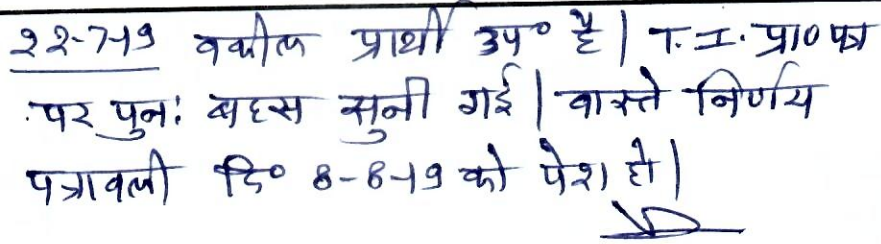 22-7-19 वकील प्रार्थी उप० है| T.I. प्रा० पत्र
पर पुन: बहस सुनी गई| वास्ते निर्णय
पत्रावली दि० 8-8-19 को पेश हो|